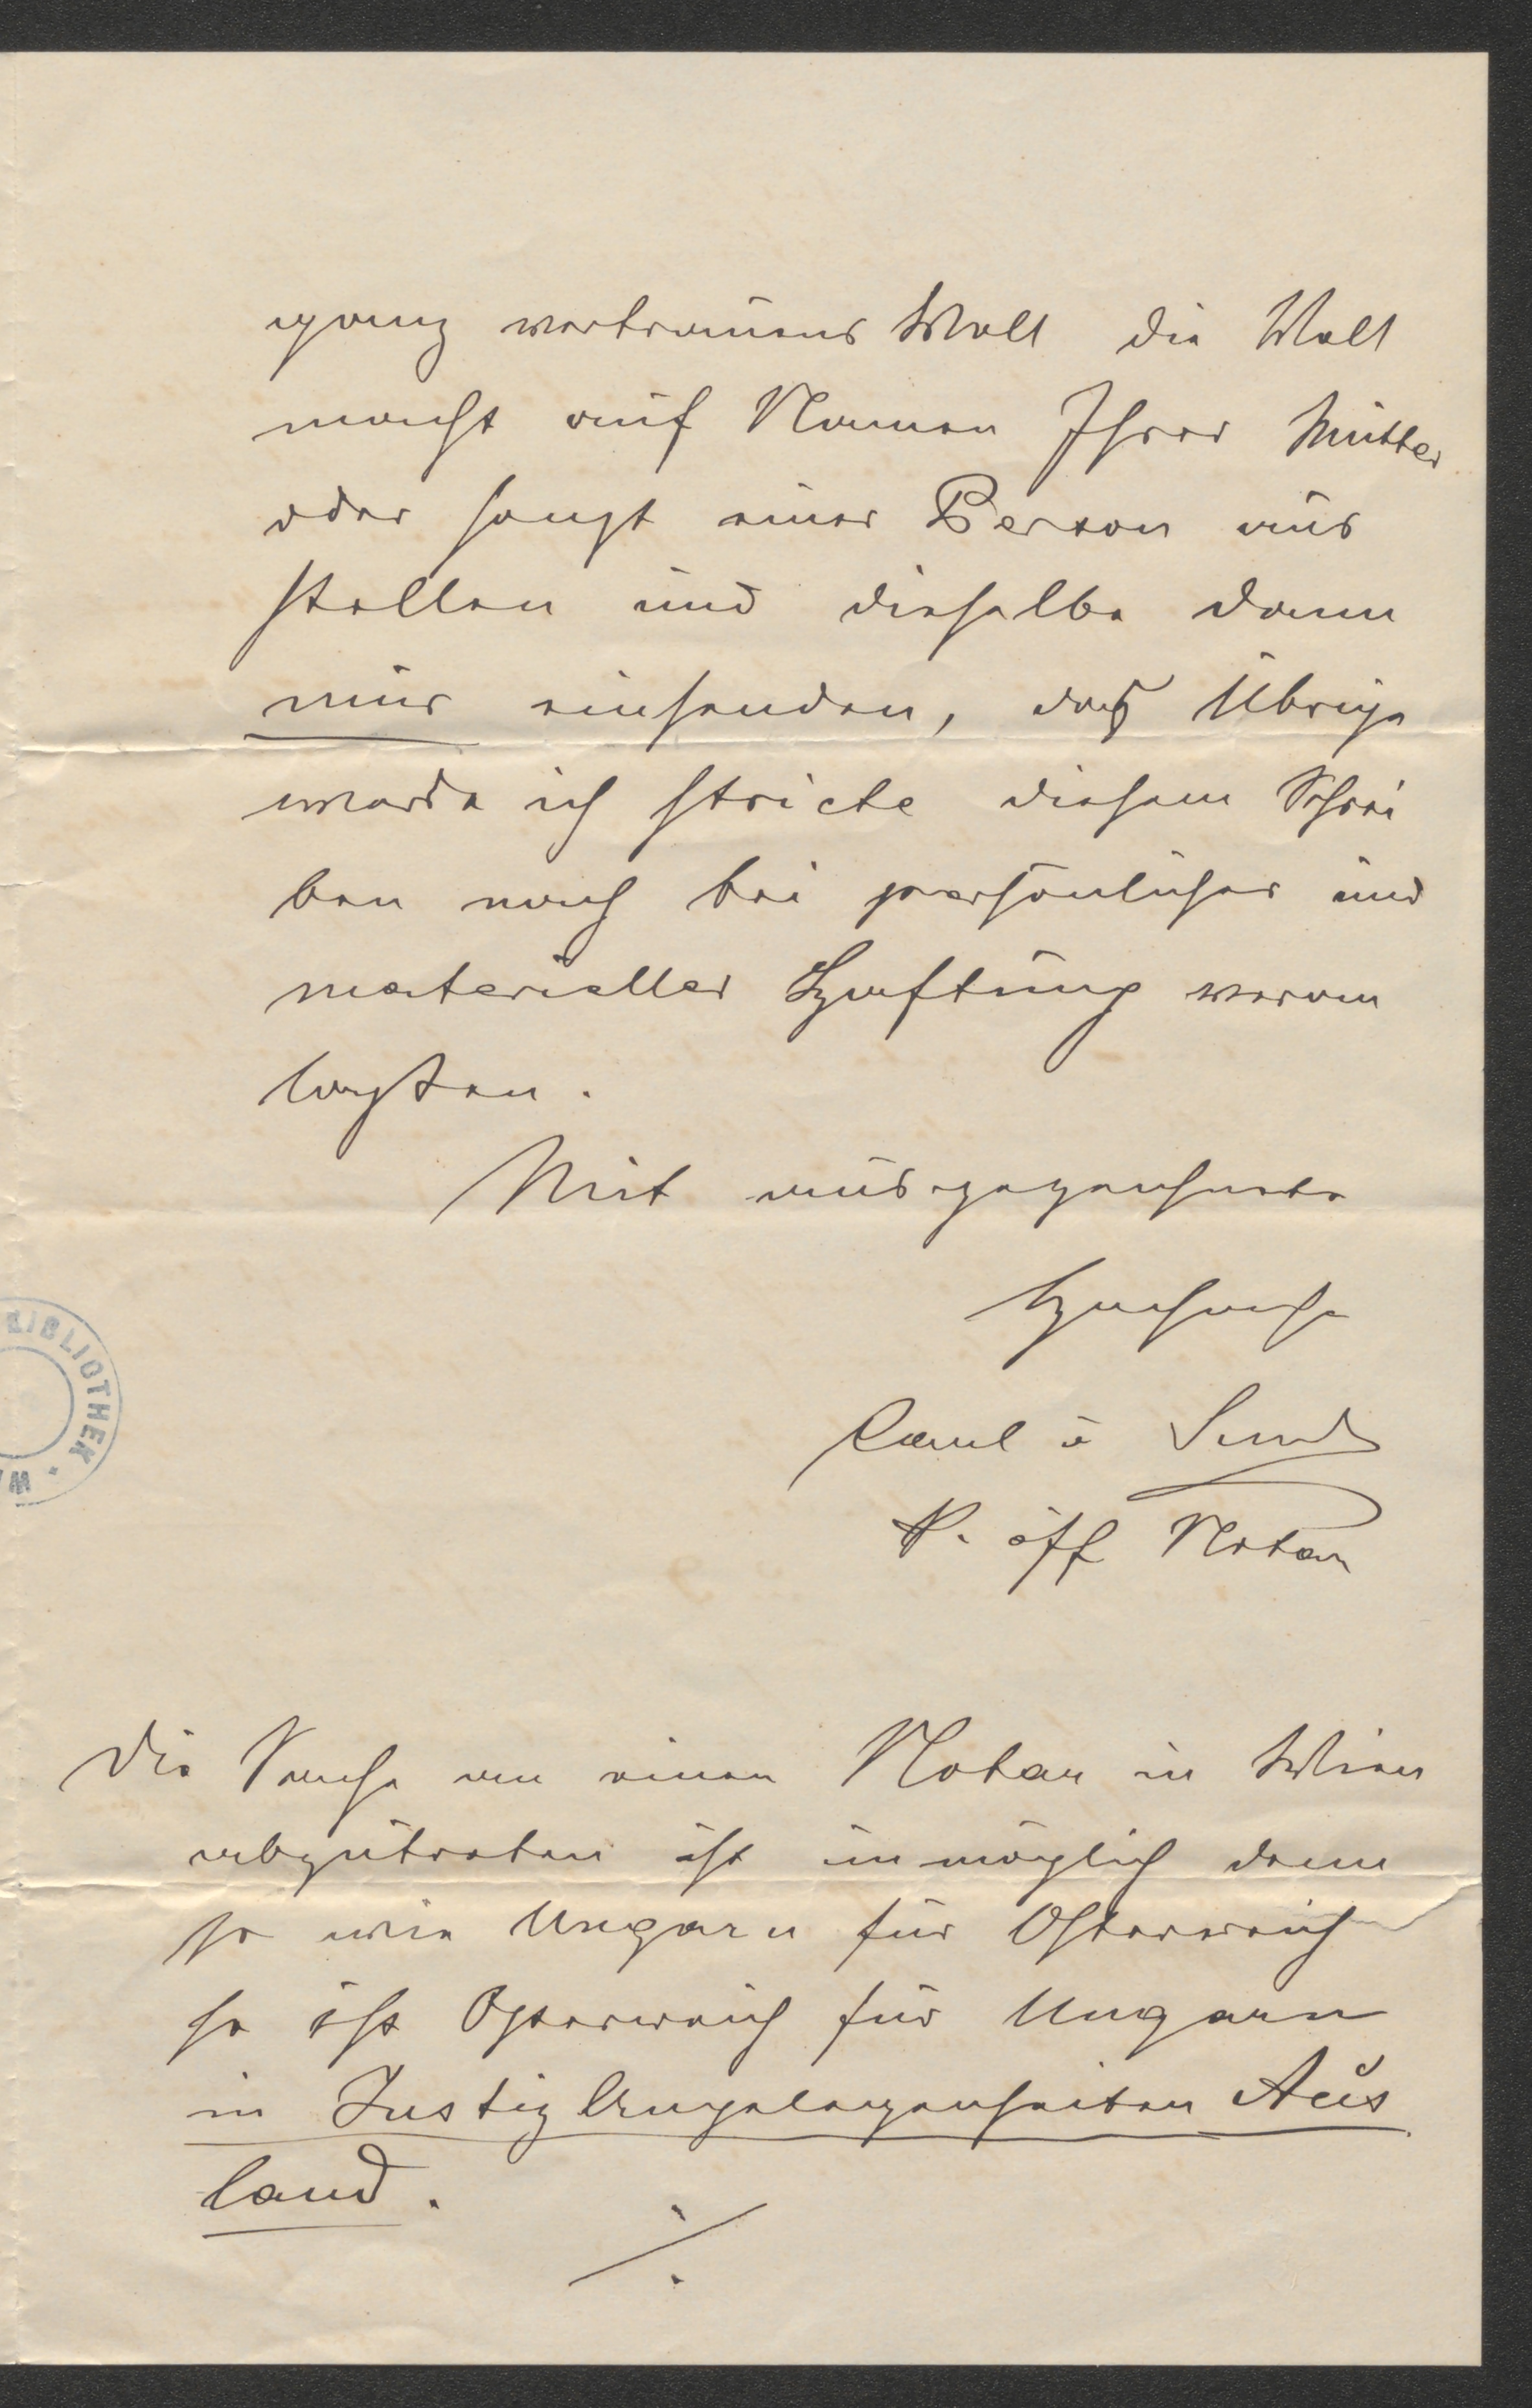 ganz vertrauens Woll die Woll
macht auf Namen Ihrer Mutter
oder sonst einer Person aus
stellen und dieselbe dann
mir einsenden, daß Übrige
werde ich stricte diesem Schrei
ben nach bei persönlicher und
materieller Haftung veran
lassen.
Mit ausgezeichneter
Hochachtung
K. öff Notar
Die Sache an einen Notar in Wien
abzutreten ist unmöglich denn
so wie Ungarn für Österreich
so ist Österreich für Ungarn
in Justiz Angelegenheiten Aus
land.
./.
BIBLIOTHEK